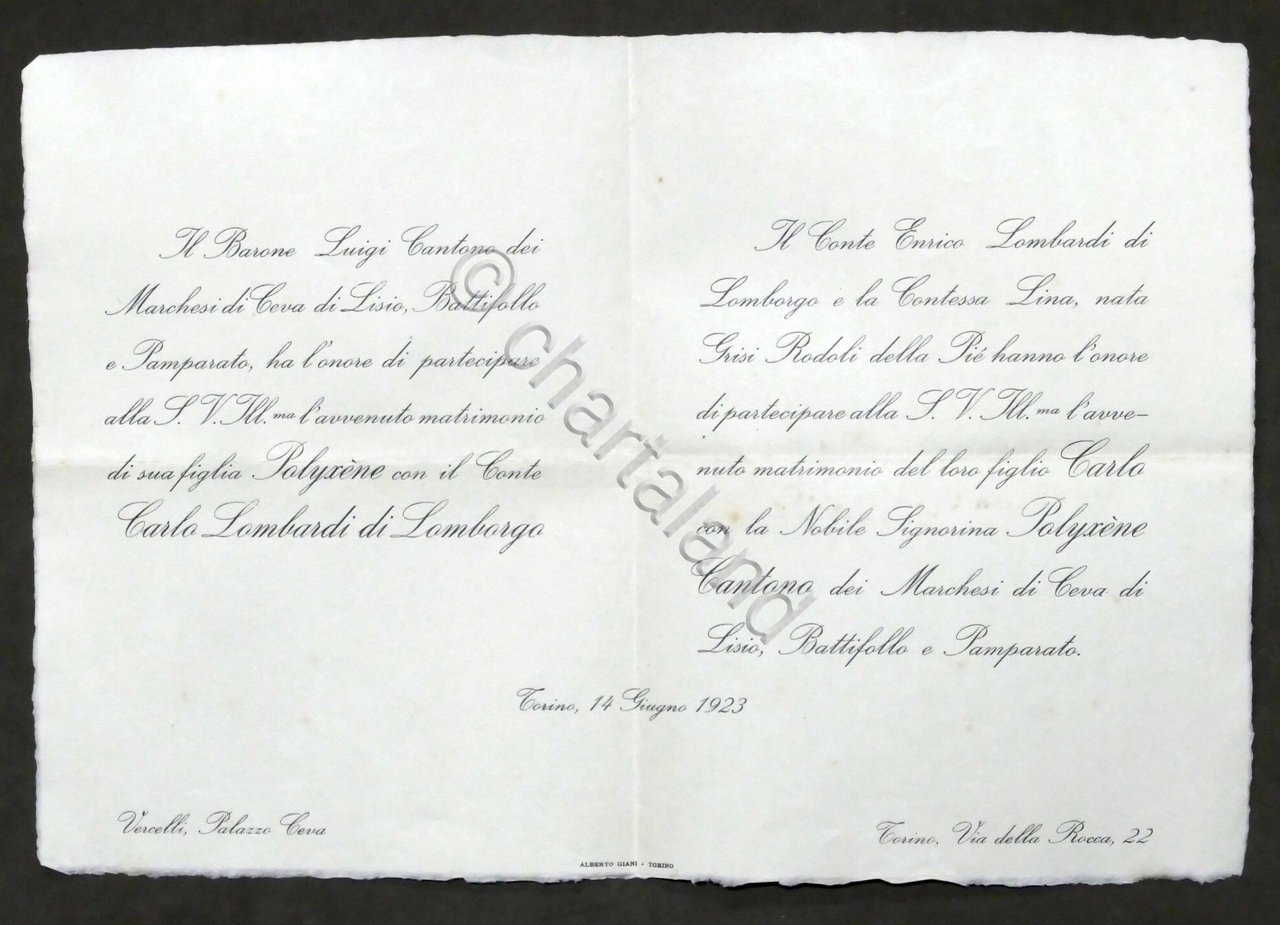 Il Barone Luigi Cantono dei
Marchesi di Ceva di Lisio, Battifollo
e Pamparato, ha l'onore di partecipare
alla S. V. Ill.ma l'avvenuto matrimonio
di sua figlia Polyxène con il Conte
Carlo Lombardi di Lomborgo
Il Conte Enrico Lombardi di
Lomborgo e la Contessa Lina, nata
Grisi Rodoli della Pié hanno l'onore
di partecipare alla S. V. Ill.ma l'avve-
nuto matrimonio del loro figlio Carlo
con la Nobile Signorina Polyxène
Cantono dei Marchesi di Ceva di
Lisio, Battifollo e Pamparato.
Torino, 14 Giugno 1923
Vercelli, Palazzo Ceva
Torino, Via della Rocca, 22
ALBERTO GIANI - TORINO
© chartaland